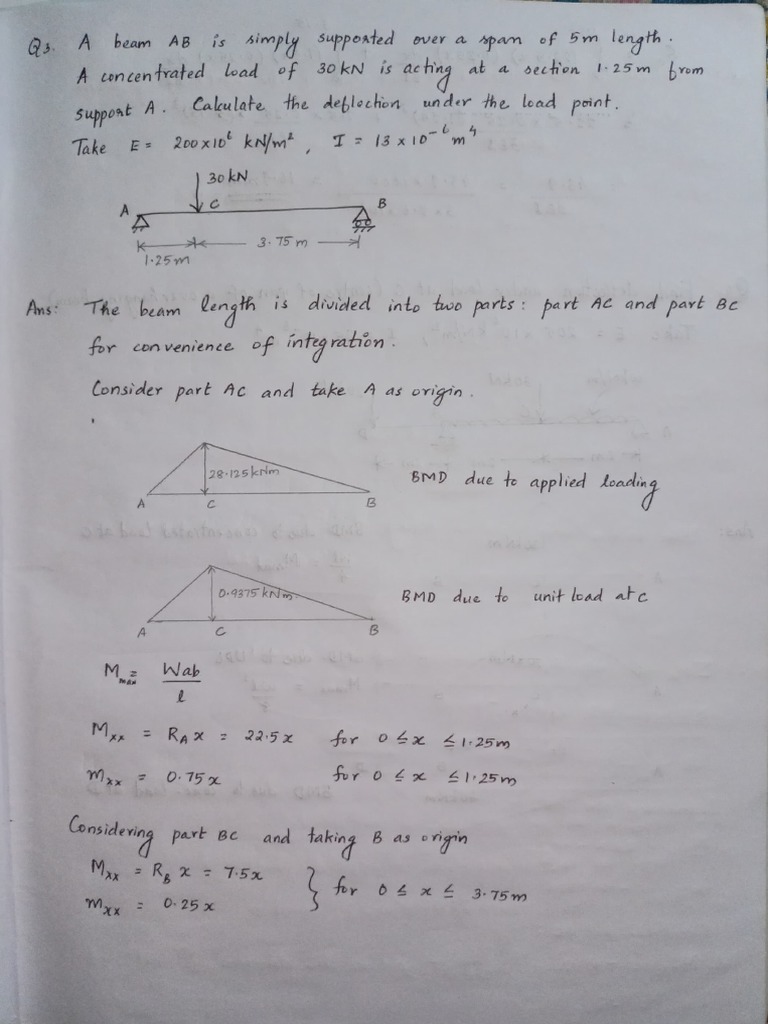 Q3. A beam AB is simply supported over a span of 5m length.
A concentrated load of 30 kN is acting at a section 1.25m from
support A. Calculate the deflection under the load point.
Take E = 200x10⁶ kN/m², I = 13 x 10⁻⁶ m⁴
30 kN
A C B
1.25m 3.75 m
Ans: The beam length is divided into two parts: part AC and part BC
for convenience of integration.
Consider part AC and take A as origin.
28.125 kNm
A C B
BMD due to applied loading
0.9375 kNm
A C B
BMD due to unit load at C
M max = Wab / l
Mxx = R_A x = 22.5x for 0 ≤ x ≤ 1.25m
mxx = 0.75x for 0 ≤ x ≤ 1.25m
Considering part BC and taking B as origin
Mxx = R_B x = 7.5x
mxx = 0.25x } for 0 ≤ x ≤ 3.75m